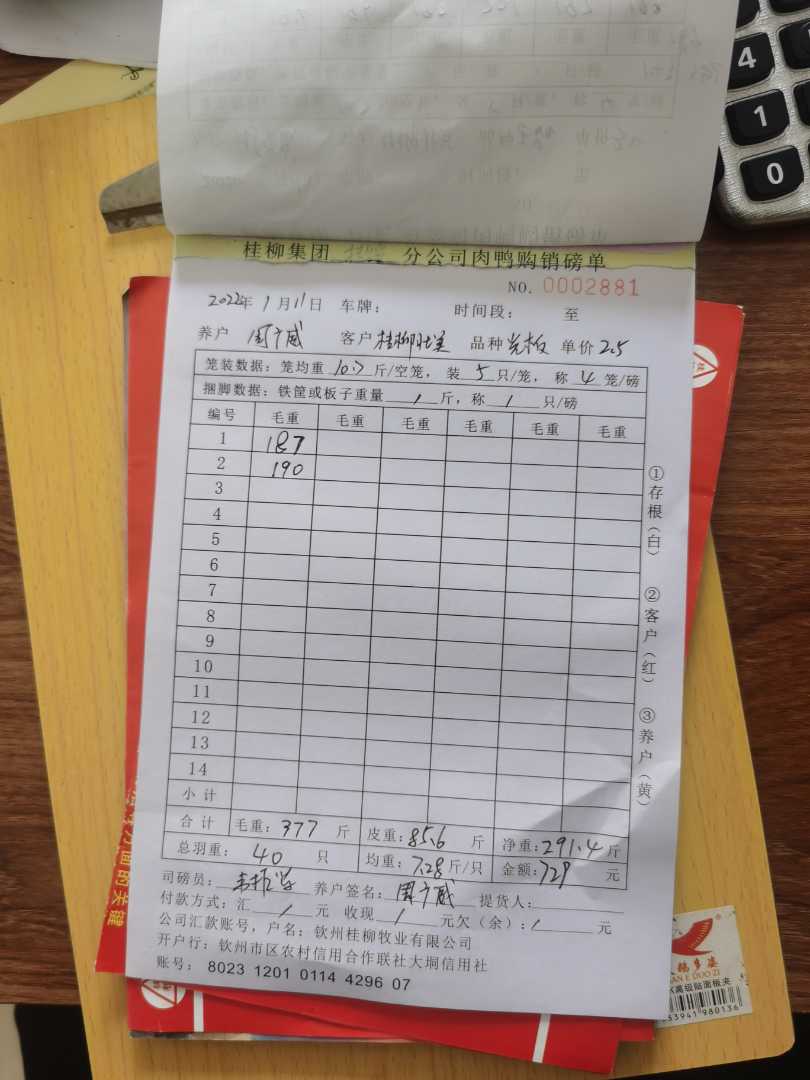 桂柳集团 分公司肉鸭购销磅单
NO. 0002881
2022年 1月11日 车牌： 时间段： 至
养户 周广威 客户 桂柳壮美 品种 光板 单价 2.5
笼装数据：笼均重 10.7 斤/空笼，装 5 只/笼，称 4 笼/磅
捆脚数据：铁筐或板子重量 / 斤，称 / 只/磅
编号 毛重 毛重 毛重 毛重 毛重 毛重
1 187
2 190
3
4
5
6
7
8
9
10
11
12
13
14
小计
合计 毛重：377 斤 皮重：85.6 斤 净重：291.4 斤
总羽重： 40 只 均重：7.28 斤/只 金额：729 元
司磅员： 养户签名：周广威 提货人：
付款方式：汇 / 元 收现 / 元欠（余）：/ 元
公司汇款账号，户名：钦州桂柳牧业有限公司
开户行：钦州市区农村信用合作联社大垌信用社
账号：8023 1201 0114 4296 07
①存根（白） ②客户（红） ③养户（黄）
4
1
0
方面的关键
AN E DUO ZI
高级贴面板夹
53941 980136